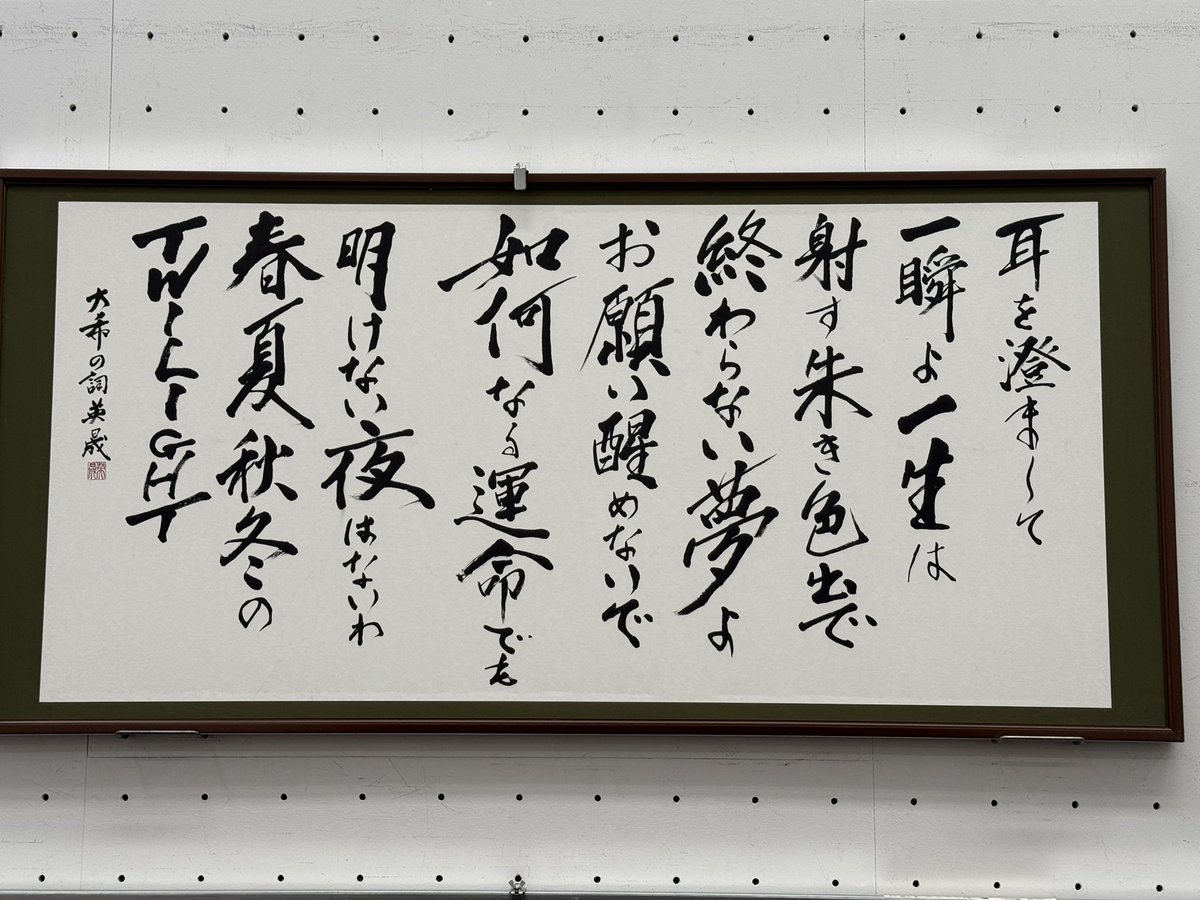 耳を澄まして
一瞬よ一生は
射す朱き色出で
終わらない夢よ
お願い醒めないで
如何なる運命でも
明けない夜はないわ
春夏秋冬の
TWILIGHT
大希の詞 英晟